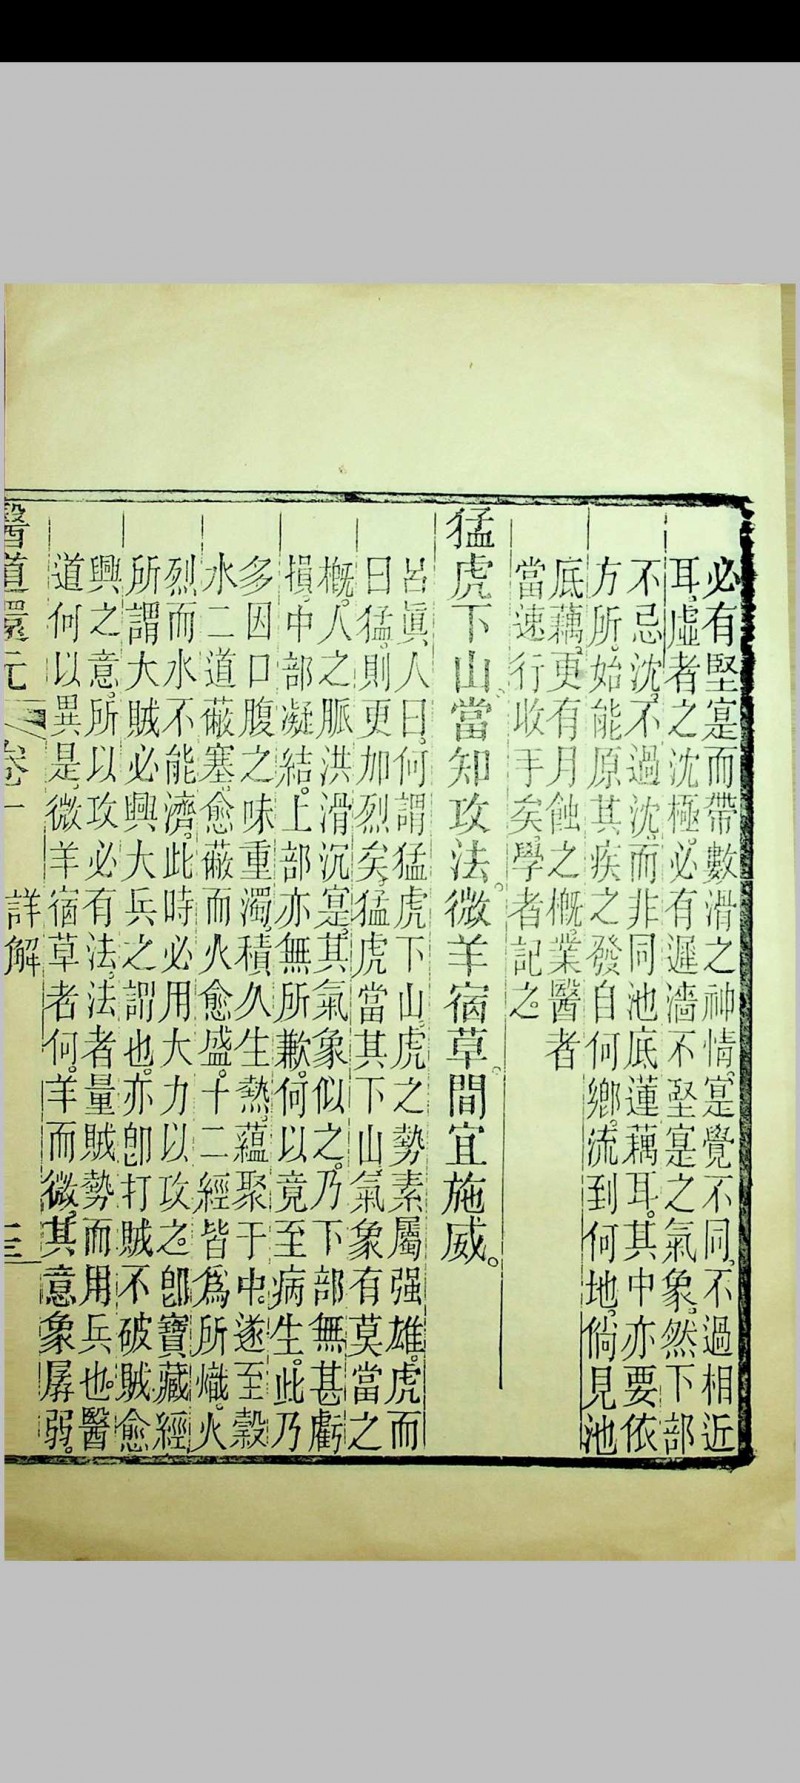 必有堅寔而帶數滑之神情。寔覺不同。不過相近
耳。虛者之沈極。必有遲濇不堅寔之氣象。然下部
不忌沈。不過沈。而非同池底蓮藕耳。其中亦要依
方所。始能原其疾之發自何鄉。流到何地。倘見池
底藕。更有月蝕之概。業醫者
當速行收手矣。學者記之。
猛虎下山。當知攻法。微羊宿草。間宜施威。
呂眞人曰。何謂猛虎下山。虎之勢素屬强雄。虎而
曰猛。則更加烈矣。猛虎當其下山。氣象有莫當之
概。人之脈洪滑沉寔。其氣象似之。乃下部無甚虧
損。中部凝結。上部亦無所歉。何以竟至病生。此乃
多因口腹之味重濁。積久生熱。蘊聚于中。遂至穀
水二道蔽塞。愈蔽而火愈盛。十二經皆爲所熾。火
烈而水不能濟。此時必用大力以攻之。卽寶藏經
所謂大賊必興大兵之謂也。亦卽打賊不破賊愈
興之意。所以攻必有法。法者量賊勢而用兵也。醫
道何以異是。微羊宿草者何。羊而微。其意象孱弱。
醫道還元 卷一 詳解 二三